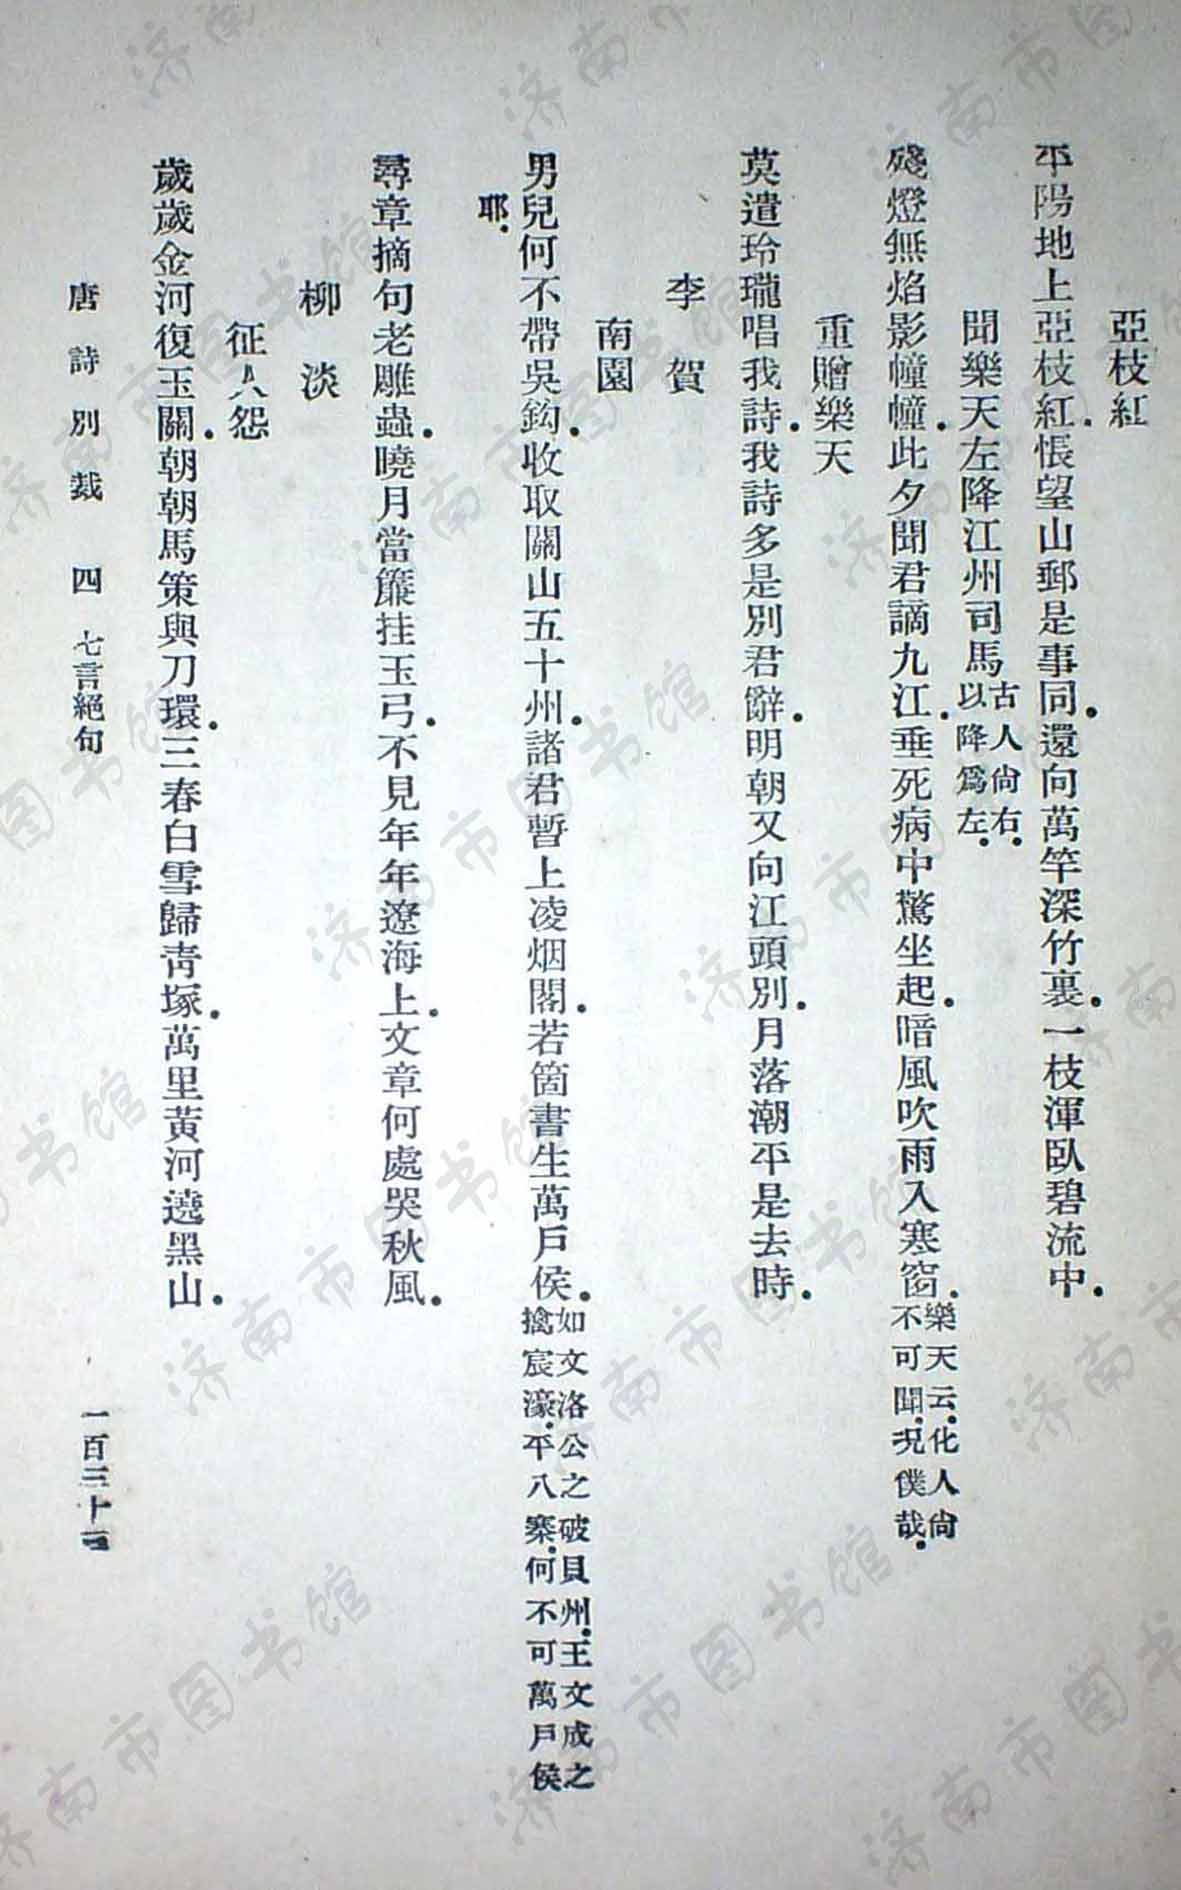 亞枝紅
平陽地上亞枝紅.悵望山郵是事同.還向萬竿深竹裏.一枝渾臥碧流中.
聞樂天左降江州司馬古人尙右.以降爲左.
殘燈無焰影幢幢.此夕聞君謫九江.垂死病中驚坐起.暗風吹雨入寒窗.樂天云.化人尙不可聞.况僕哉.
重贈樂天
莫遣玲瓏唱我詩.我詩多是別君辭.明朝又向江頭別.月落潮平是去時.
李賀
南園
男兒何不帶吳鈎.收取關山五十州.諸君暫上凌烟閣.若箇書生萬戶侯.如文洛公之破貝州.王文成之擒宸濠.平八寨.何不可萬戶侯
耶.
尋章摘句老雕蟲.曉月當簾挂玉弓.不見年年遼海上.文章何處哭秋風.
柳淡
征人怨
歲歲金河復玉關.朝朝馬策與刀環.三春白雪歸青塚.萬里黃河遶黑山.
唐詩別裁 四 七言絕句
一百三十三
济南市图书馆